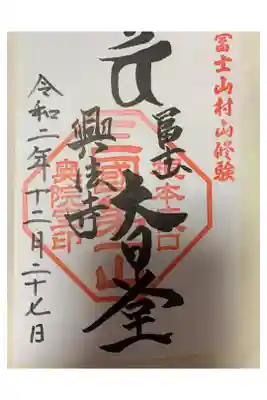 冨士山村山修験
冨士
大日堂
三國第一山
興法寺
令和二年十二月二十七日